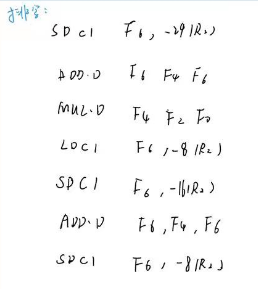 SDC1 F6, -24(R2)
ADD.D F6 F4 F6
MUL.D F4 F2 F0
LDC1 F6, -8(R2)
SDC1 F6, -16(R2)
ADD.D F6, F4, F6
SDC1 F6, -8(R2)